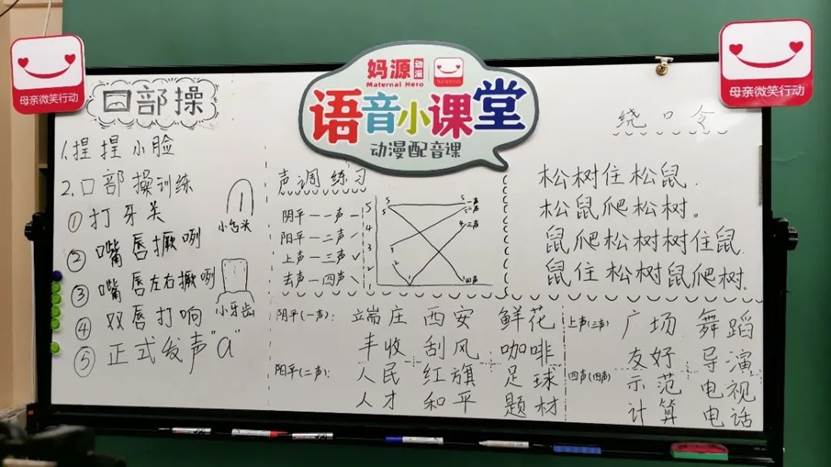 母亲微笑行动
妈源动漫
Maternal Hero
语音小课堂
动漫配音课
母亲微笑行动
口部操
1.捏捏小脸
2.口部操训练
①打牙关
②嘴唇撅咧
③嘴唇左右撅咧
④双唇打响
⑤正式发声"a"
小舌头
小牙齿
声调练习
阴平——一声
阳平——二声
上声——三声
去声——四声
5
4
3
2
1
一声
二声
四声
绕口令
松树住松鼠.
松鼠爬松树。
鼠爬松树树住鼠.
鼠住松树鼠爬树.
阴平(一声): 立端庄 西安 鲜花
丰收 刮风 咖啡
阳平(二声): 人民 红旗 足球
人才 和平 题材
上声(三声) 广场 舞蹈
友好 导演
四声(四声) 示范 电视
计算 电话